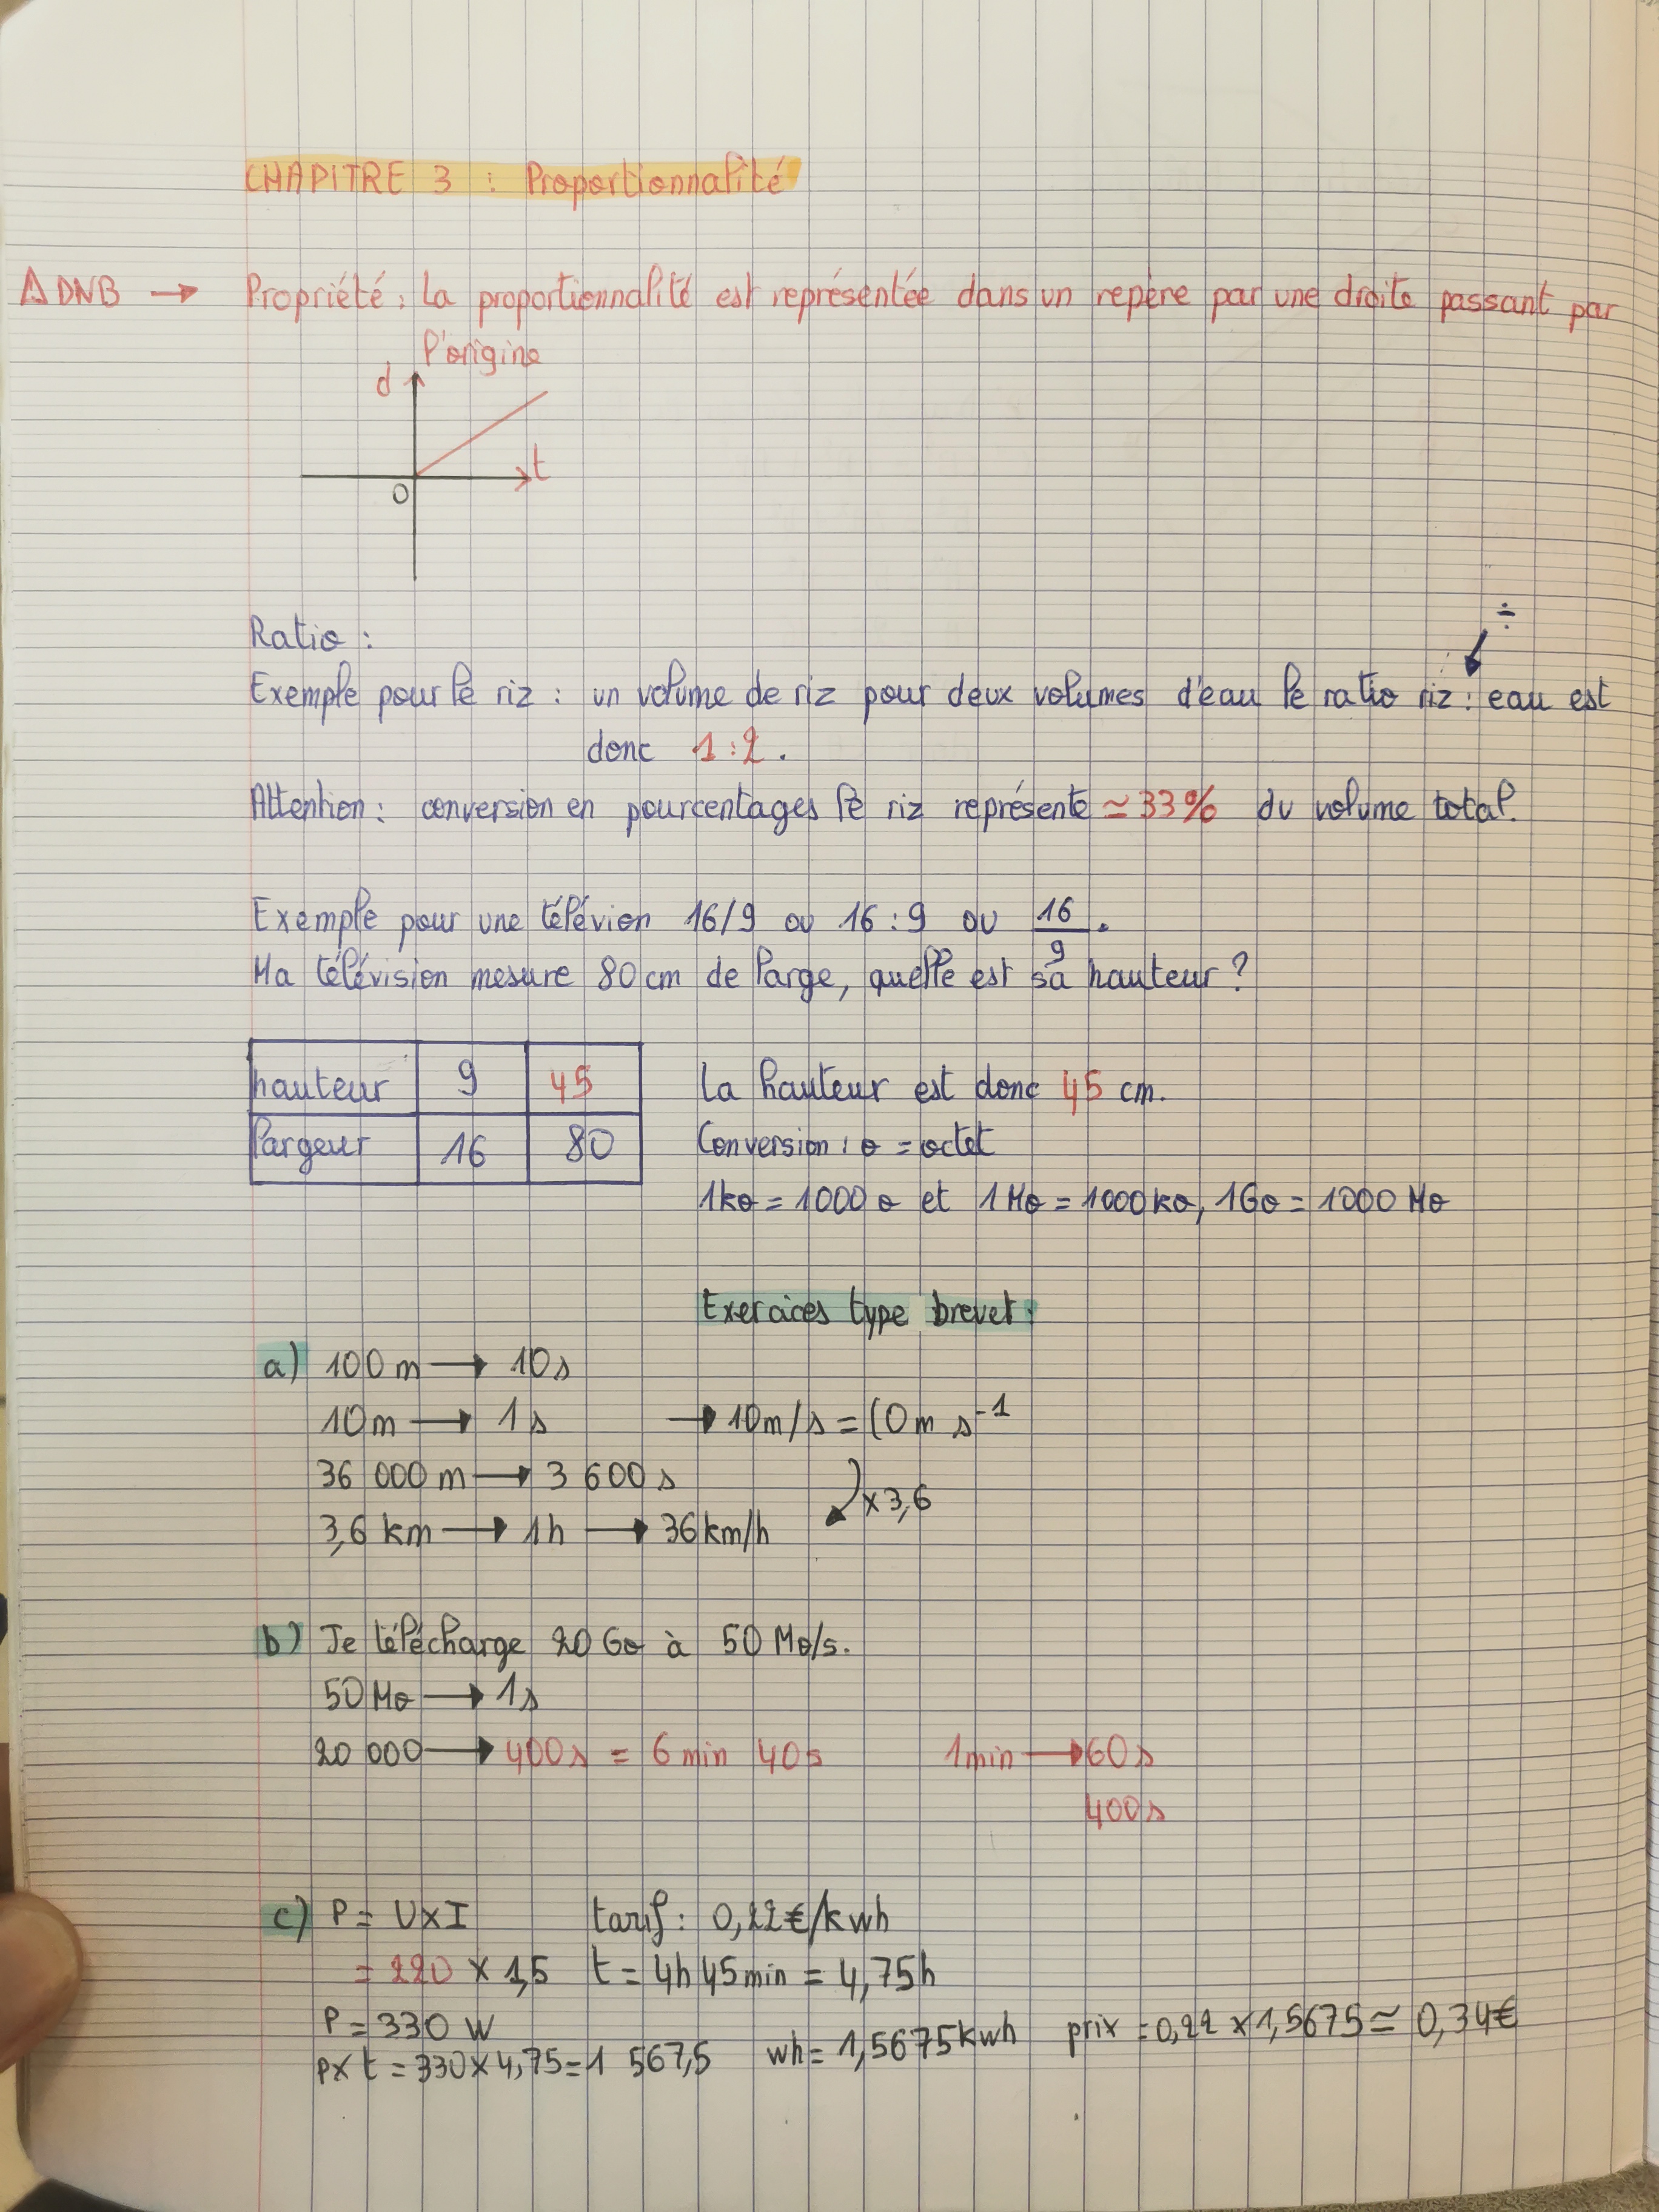 CHAPITRE 3 : Proportionnalité
⚠ DNB → Propriété : La proportionnalité est représentée dans un repère par une droite passant par
l'origine
d
t
0
Ratio :
÷
Exemple pour le riz : un volume de riz pour deux volumes d'eau le ratio riz : eau est
donc 1 : 2 .
Attention : conversion en pourcentages le riz représente ≃ 33% du volume total.
Exemple pour une télévion 16/9 ou 16 : 9 ou 16/9 .
Ma télévision mesure 80 cm de large, quelle est sa hauteur ?
hauteur 9 45
largeur 16 80
La hauteur est donc 45 cm.
Conversion : o = octet
1ko = 1000 o et 1 Mo = 1000 ko, 1Go = 1000 Mo
Exercices type brevet :
a) 100 m → 10 s
10 m → 1 s → 10 m/s = 10 m s⁻¹
36 000 m → 3 600 s
x 3,6
3,6 km → 1h → 36 km/h
b) Je télécharge 20 Go à 50 Mo/s.
50 Mo → 1s
20 000 → 400s = 6 min 40s 1min → 60s
400s
c) P = U x I tarif : 0,22€/kwh
= 220 x 1,5 t = 4h 45min = 4,75h
P = 330 W
P x t = 330 x 4,75 = 1 567,5 wh = 1,5675 kwh prix = 0,22 x 1,5675 ≃ 0,34€